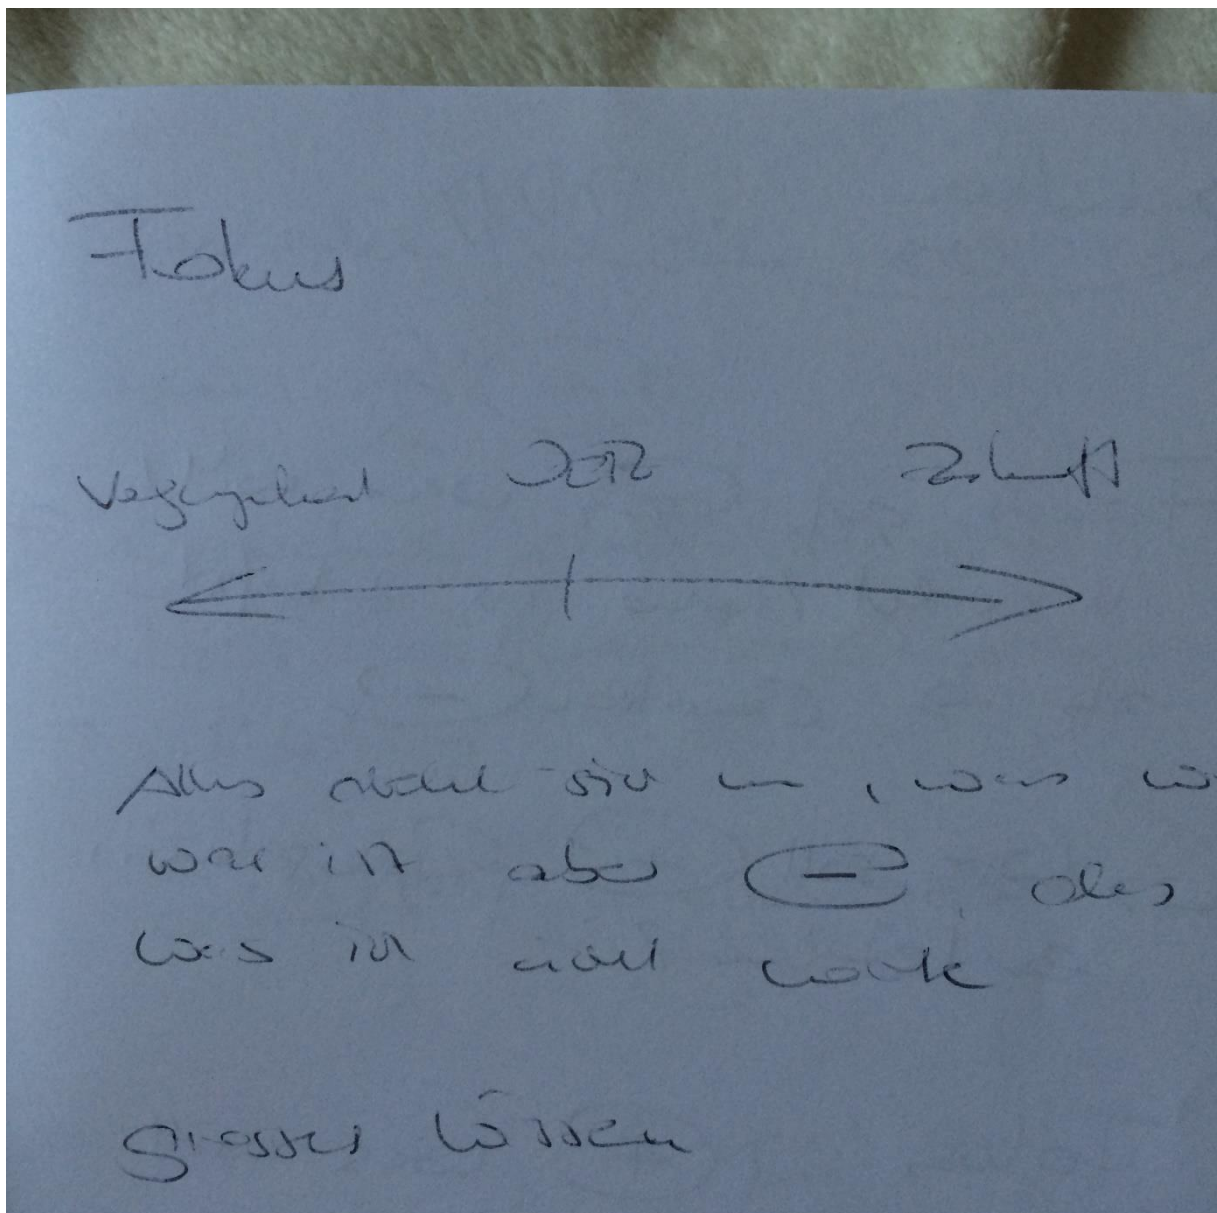 Fokus
Vergangenheit Jetzt Zukunft
Alles dreht sich um, was
war ist aber — das
was ist nicht
grosses Wissen